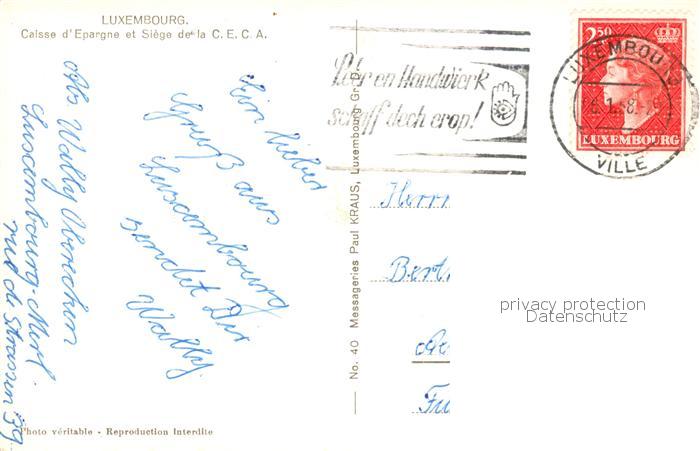 LUXEMBOURG.
Caisse d'Epargne et Siège de la C.E.C.A.
Ein lieber
Gruß aus
Luxembourg
sendet Dir
Wally.
Abs Wally
Luxembourg-Merl.
rue de Strassen 39
Photo véritable - Reproduction Interdite
No. 40 Messageries Paul KRAUS, Luxembourg Gr.D.
Léier en Handwierk
schaff dech erop!
2.50
LUXEMBOURG
LUXEMBOURG
VILLE
Herrn
Bert
Fu
privacy protection
Datenschutz